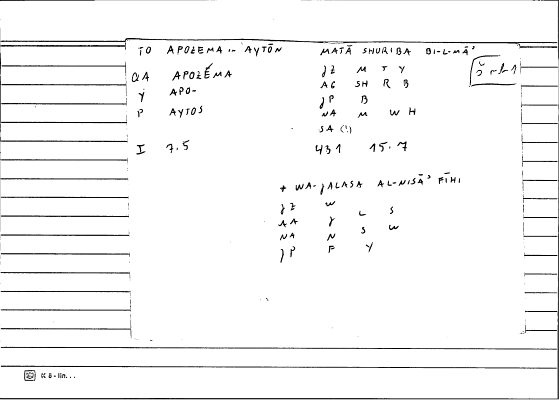 TO APOZEMA .. AYTŌN MATĀ SHURIBA BI-L-MĀʾ
QA APOZEMA JZ M T Y
Y APO- AG SH R B
P AYTOS JP B
NA M W H
SA (!)
I 7.5 431 15.7
+ WA-JALASA AL-NISĀʾ FĪHI
JZ W
AA J L S
NA N S W
JP F Y
K 8 - lin...